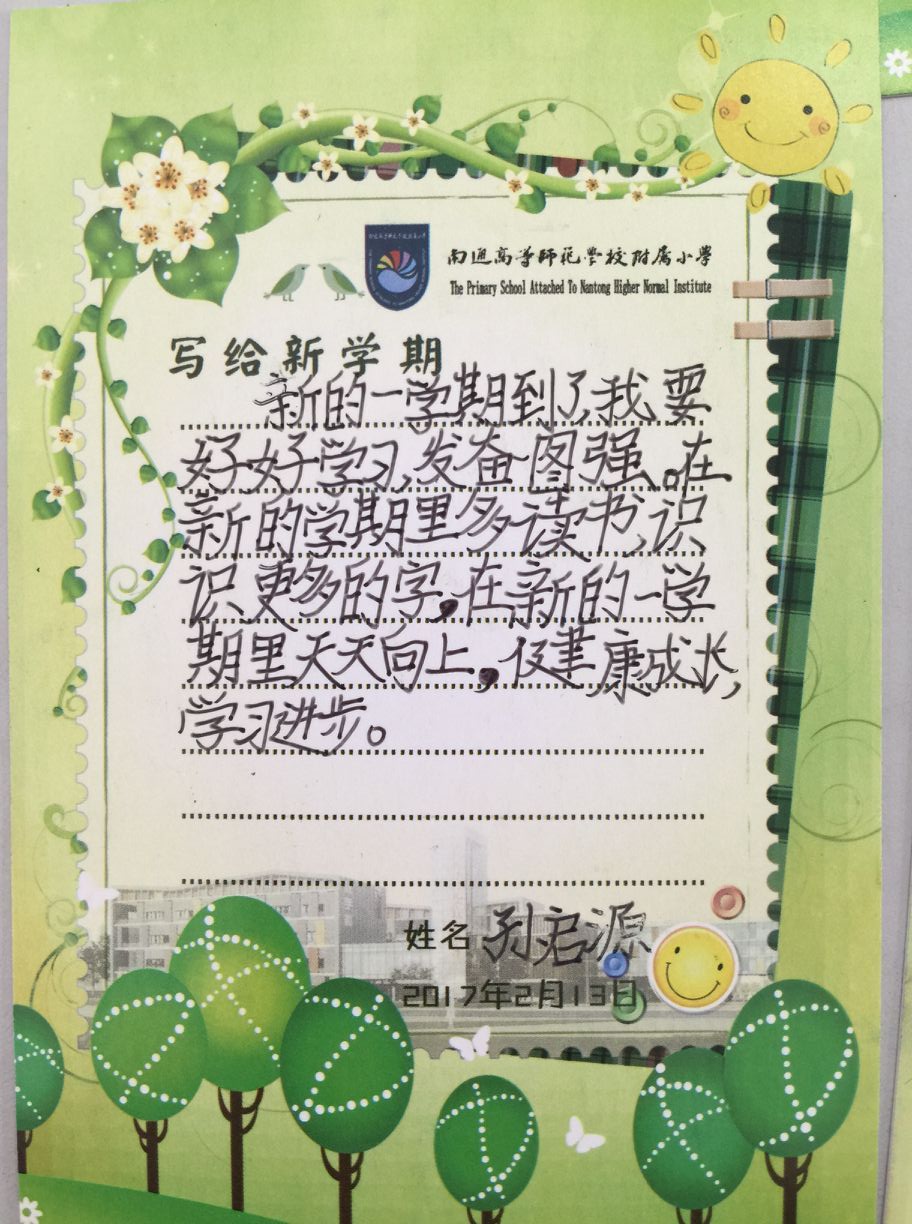 南通高等师范学校附属小學
The Primary School Attached To Nantong Higher Normal Institute
写给新学期
新的一学期到了,我要
好好学习,发奋图强。在
新的学期里多读书,识
识更多的字,在新的一学
期里天天向上,健康成长,
学习进步。
姓名 孙启源
2017年2月13日